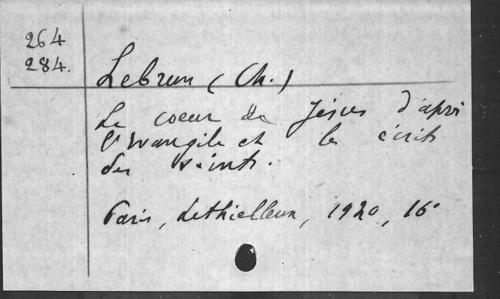 264
284.
Lebrun (Ch.)
Le coeur de Jésus d'après
l'Evangile et les écrits
des saints.
Paris, Lethielleux, 1920, 16°